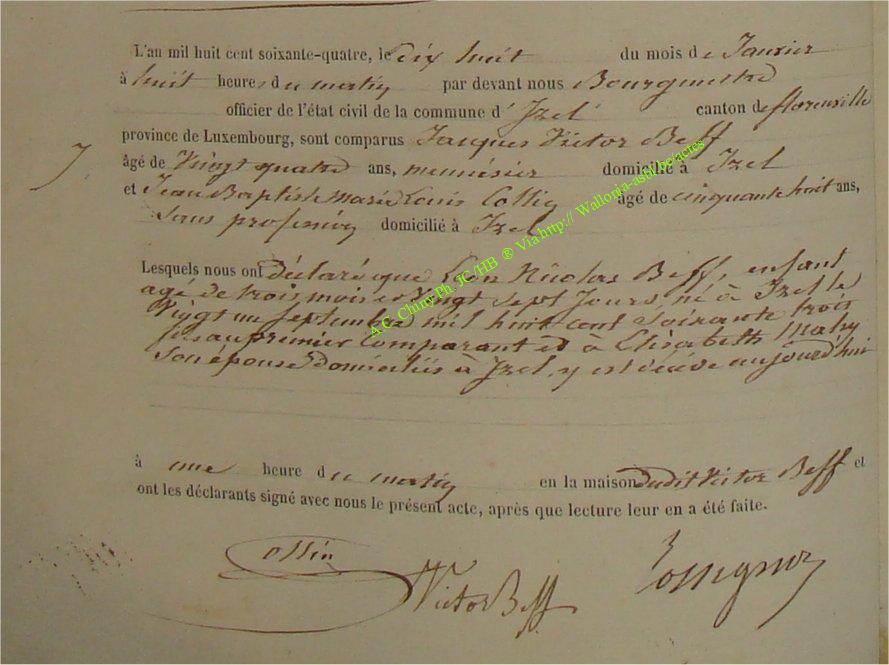 L'an mil huit cent soixante-quatre, le dix huit du mois de Janvier
à huit heures du matin par devant nous Bourgmestre
officier de l'état civil de la commune d'Izel canton de florenville
province de Luxembourg, sont comparus Jacques Victor Beff
7
âgé de Vingt quatre ans, menuisier domicilié à Izel
et Jean Baptiste Marie Louis Collin âgé de cinquante huit ans,
Sans profession domicilié à Izel
Lesquels nous ont déclaré que Léon Nicolas Beff, enfant
agé de trois mois et Vingt Sept Jours, né à Izel le
Vingt un Septembre mil huit cent Soixante trois
fils au premier Comparant et à Elisabeth Mahy
Son épouse domiciliés à Izel, y est décédé aujourd'hui
à une heure du matin en la maison dudit Victor Beff et
ont les déclarants signé avec nous le présent acte, après que lecture leur en a été faite.
Collin
Victor Beff
Rossignon
A.C. Chiny Ph. JC/HB ® Via http:// Wallonia-asbl.be/actes